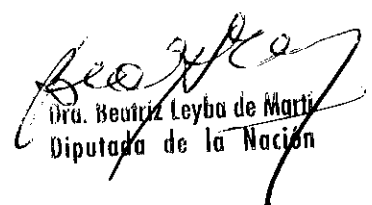 Dra. Beatriz Leyba de Martí
Diputada de la Nación